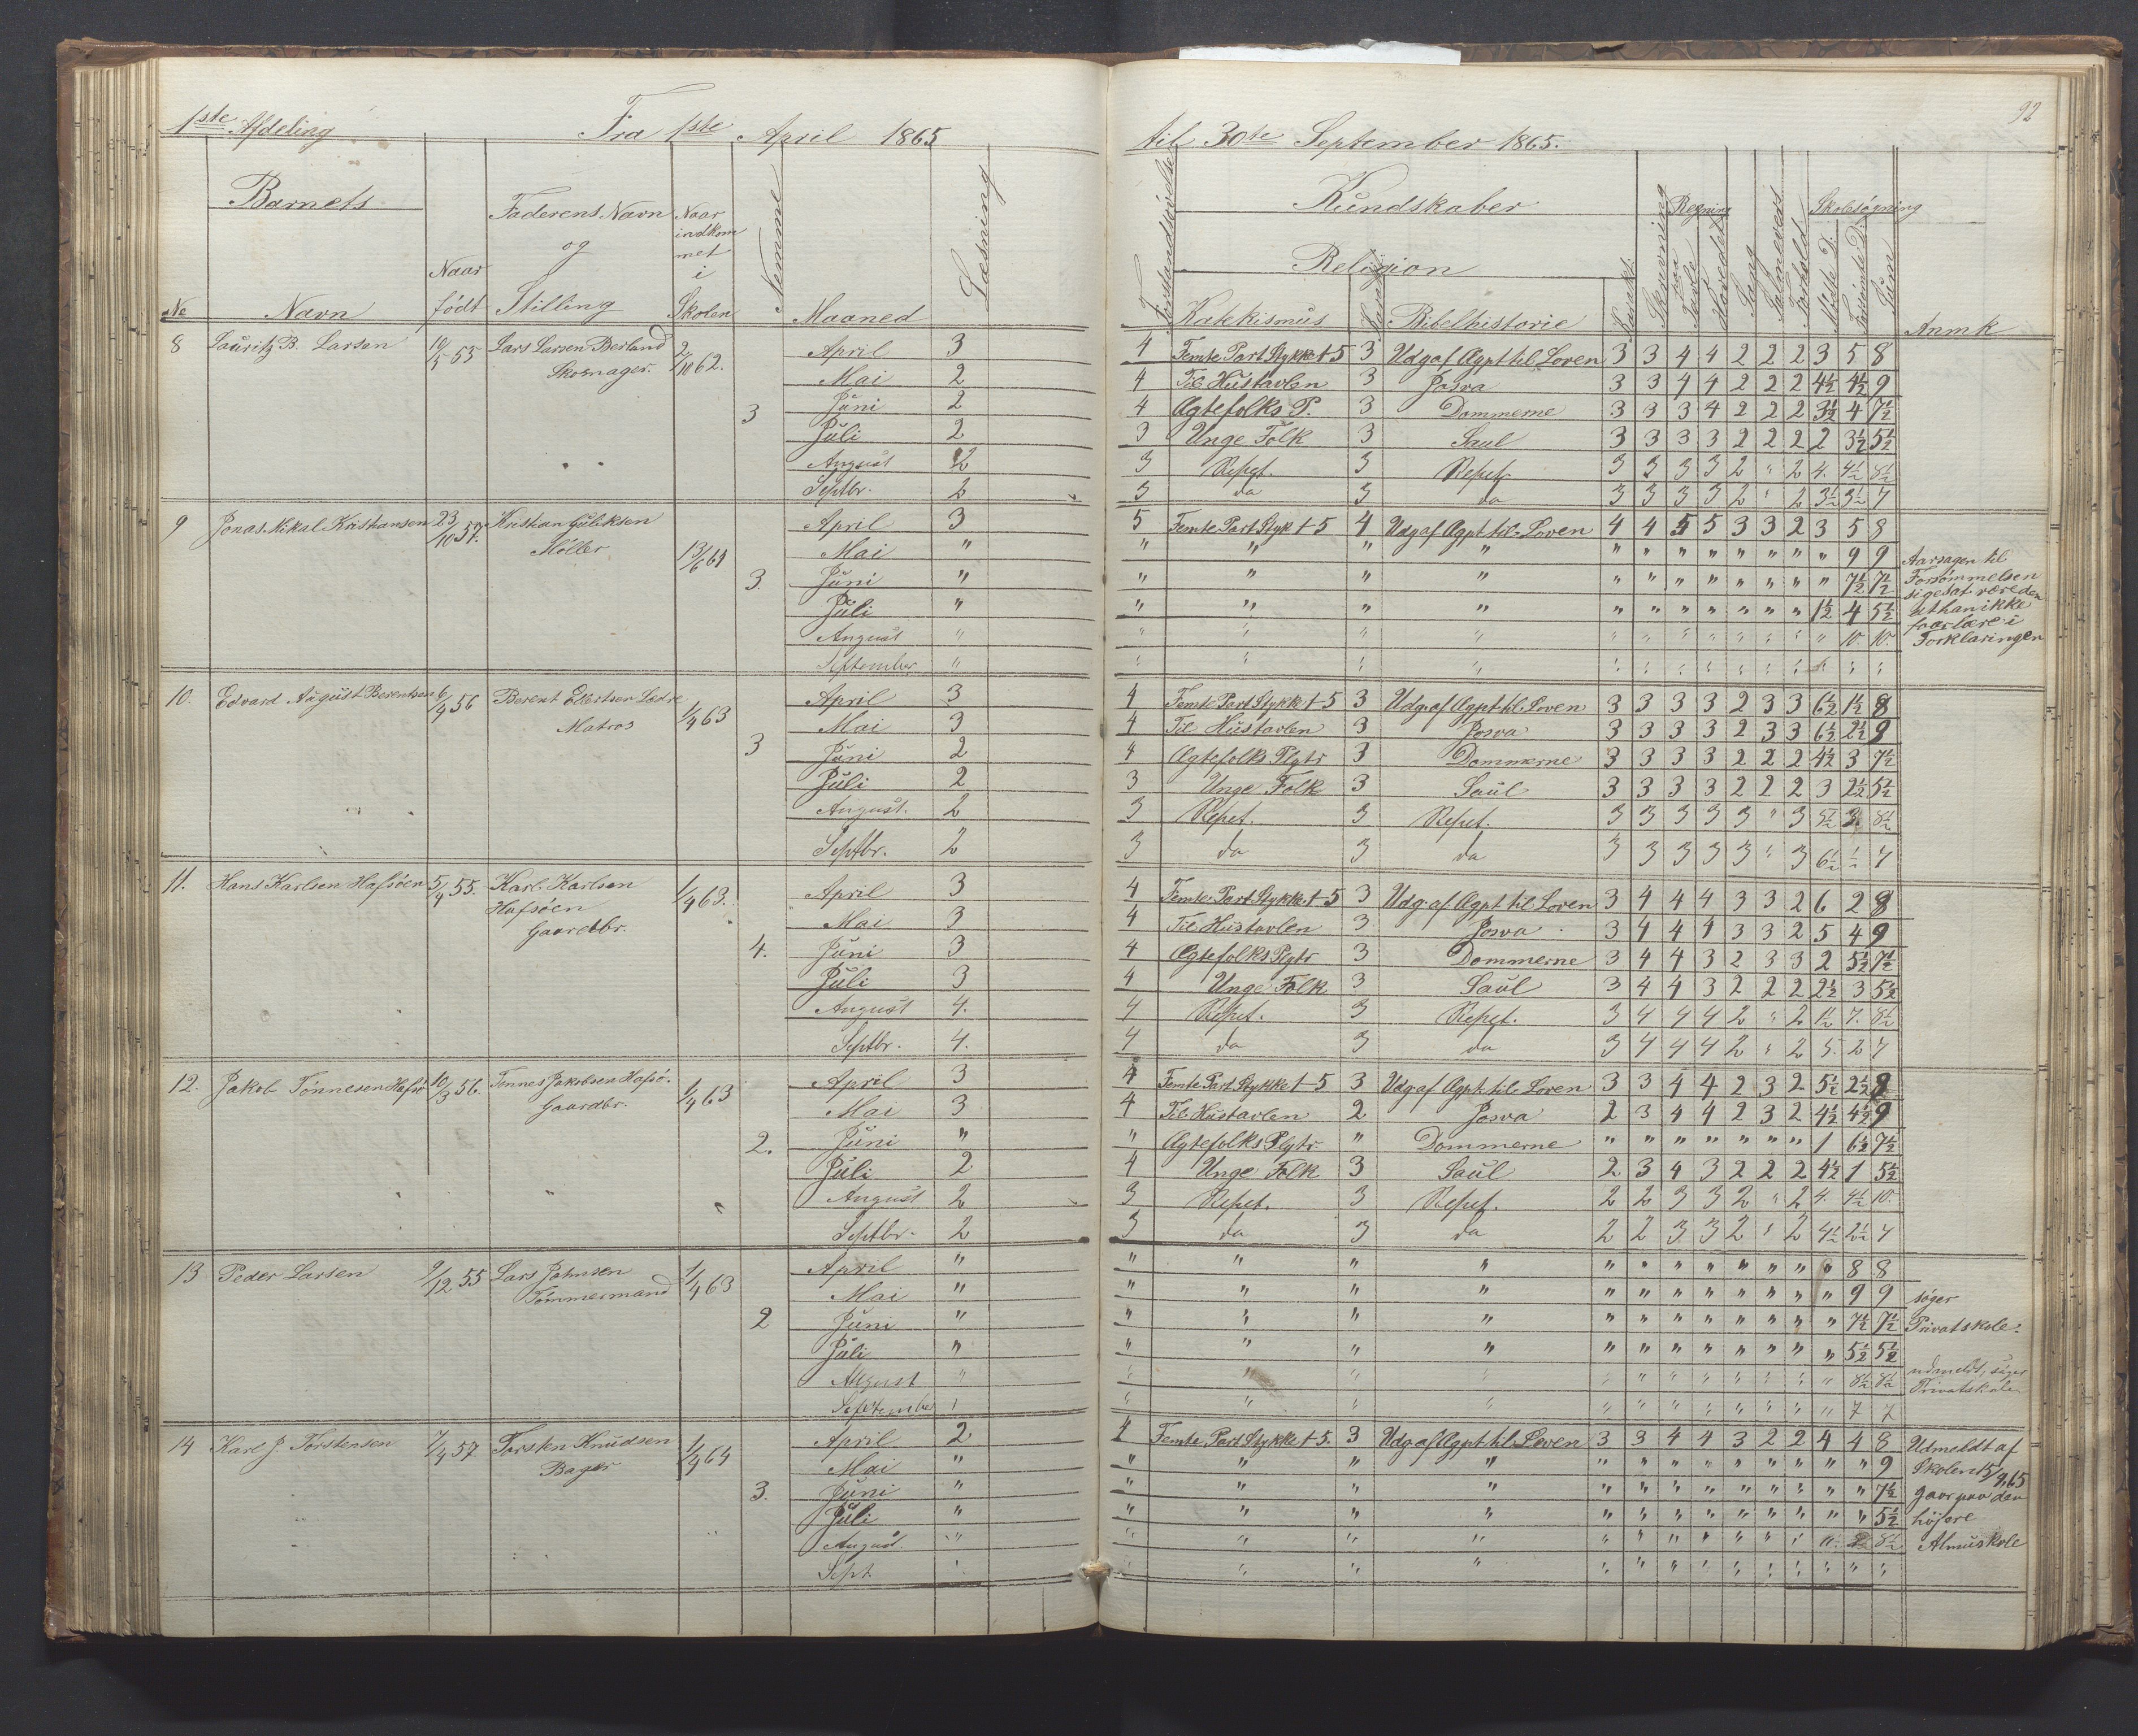 1ste Afdeling Fra 1ste April 1865 til 30te September 1865. 92
Barnets Faderens Navn og Stilling Naar indkommet i Skolen Nemme Maaned Læsning
No Navn Naar født
Forstandsøvelse Kundskaber Religion Katekismus Karakt. Bibelhistorie Karakt. Skrivning Regning paa Tavle Hovedet Sang Salmevers Forhold Skolesøgning Mødte D. Forsømte D. Sum Anmk
8 Lauritz B. Larsen 10/5 53 Lars Larsen Berland Skomager. 2/10 62. 3
April 3 4 Femte Part Stykke 1-5 3 Udg af Ægpt til Loven 3 3 4 4 2 2 2 3 5 8
Mai 2 4 Til Hustavlen 3 Josva 3 3 4 4 2 2 2 4½ 4½ 9
Juni 2 4 Ægtefolks P. 3 Dommerne 3 3 3 4 2 2 2 3½ 4 7½
Juli 2 3 Unge Folk 3 Saul 3 3 3 3 2 2 2 2 3½ 5½
August 2 3 Repet. 3 Repet. 3 3 3 3 2 " 2 4. 4½ 8½
Septbr. 2 3 da 3 da 3 3 3 3 2 " 2 3½ 3½ 7
9 Jonas Nikal Kristiansen 23/10 57. Kristian Guliksen Møller 13/6 64 3.
April 3 5 Femte Part Styk 1-5 4 Udg af Ægpt til Loven 4 4 5 5 3 3 2 3 5 8
Mai " " " " " " " " " " " " " 9 9 Aarsagen til
Juni " " " " " " " " " " " " " 7½ 7½ Forsømmelsen
Juli " " " " " " " " " " " " 1½ 4 5½ siges at være den
at han ikke
August " " " " " " " " " " " " " 10 10. faar lære i
September " " " " " " " " " " " " " " " Forklaringen
10. Edvard August Berentsen 6/9 56 Berent Ellertsen Ledre Matros 1/4 63 3
April 3 4 Femte Part Stykke 1-5 3 Udg. af Ægpt til Loven 3 3 3 3 2 3 3 6½ 1½ 8
Mai 3 4 Til Hustavlen 3 Josva 3 3 3 3 2 3 3 6½ 2½ 9
Juni 2 4 Ægtefolks Plgtr 3 Dommerne 3 3 3 3 2 2 2 4½ 3 7½
Juli 2 3 Unge Folk 3 Saul 3 3 3 3 2 2 2 3 2½ 5½
August. 2 3 Repet. 3 Repet. 3 3 3 3 3 " 3 5½ 3. 8½
Septbr. 2 3 da 3 da 3 3 3 3 3 " 3 6½ ½ 7
11. Hans Karlsen Hafsøen 5/9 55. Karl Karlsen Hafsøen Gaardbr. 1/4 63. 4.
April 3 4 Femte Part Stykke 1-5 3 Udg. af Ægpt til Loven 3 4 4 4 3 3 2 6 2 8
Mai 3 4 Til Hustavlen 3 Josva 3 4 4 4 3 3 2 5 4 9
Juni 3 4 Ægtefolks Plgtr 3 Dommerne 3 4 4 3 2 3 3 2 5½ 7½
Juli 3 4 Unge Folk 3 Saul 3 4 4 3 2 2 2 2½ 3 5½
August 4. 4 Repet. 3 Repet. 3 4 4 4 2 " 2 1½ 7. 8½
Septbr. 4. 4 da 3 da 3 4 4 4 2 " 2 5. 2 7
12. Jakob Tønnesen Hafsö 10/3 56. Tønnes Jakobsen Hafsö. Gaardbr. 1/4 63 2.
April 3 4 Femte Part Stykke 1-5 3 Udg af Ægpt til Loven 3 3 4 4 2 3 2 5½ 2½ 8
Mai 3 4 Til Hustavlen 2 Josva 2 3 4 4 2 3 2 4½ 4½ 9
Juni " " Ægtefolks Plgtr. " Dommerne " " " " " " " 1 6½ 7½
Juli 2 4 Unge Folk 3 Saul 2 3 4 3 2 2 2 4½ 1 5½
August 2 3 Repet. 3 Repet. 2 2 3 3 2 " 2 4. 4½ 10.
Septbr. 2 3 da 3 da 2 2 3 3 2 " 2 4½ 2½ 7
13 Peder Larsen 9/12 55 Lars Johnsen Tømmermand 1/4 63 2
April " " " " " " " " " " " " " 8 8
Mai " " " " " " " " " " " " " 9 9 søger
Juni " " " " " " " " " " " " " 7½ 7½ Privatskole.
Juli " " " " " " " " " " " " " 5½ 5½
August " " " " " " " " " " " " " 8½ 8½ udmeldt, søger
September " " " " " " " " " " " " " 7 7 Privatskole
14 Karl J. Torstensen 7/9 57. Torsten Knudsen Bager 1/4 64 3.
April 2 4 Femte Part Stykke 1-5. 3 Udg af Ægpt til Loven 3 3 4 4 3 2 2 4 4 8 Udmeldt af
Mai " " " " " " " " " " " " " " 9 Skolen 15/9 65
Juni " " " " " " " " " " " " " " 7½ gaar paa den
Juli " " " " " " " " " " " " " " 5½ højere
August. " " " " " " " " " " " " " 8½ Almuskole
Sept " " " " " " " " " " " " " " "